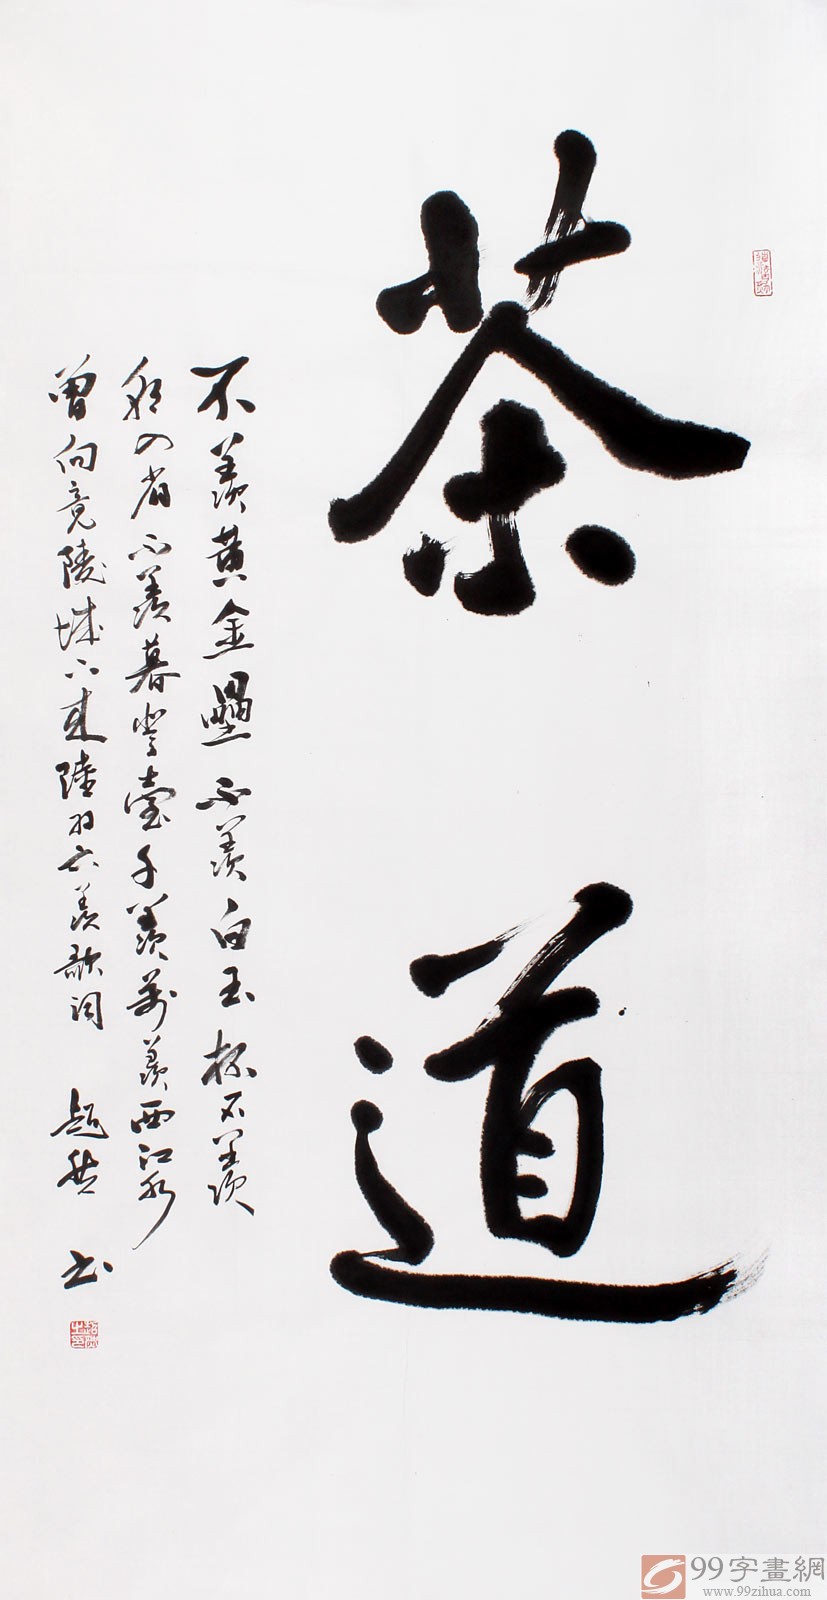 茶道
不羡黄金罍不羡白玉杯不羡
朝入省不羡暮登臺千羡萬羡西江水
曾向竟陵城下来陸羽六羡歌詞 超然 书
99字畫網
www.99zihua.com